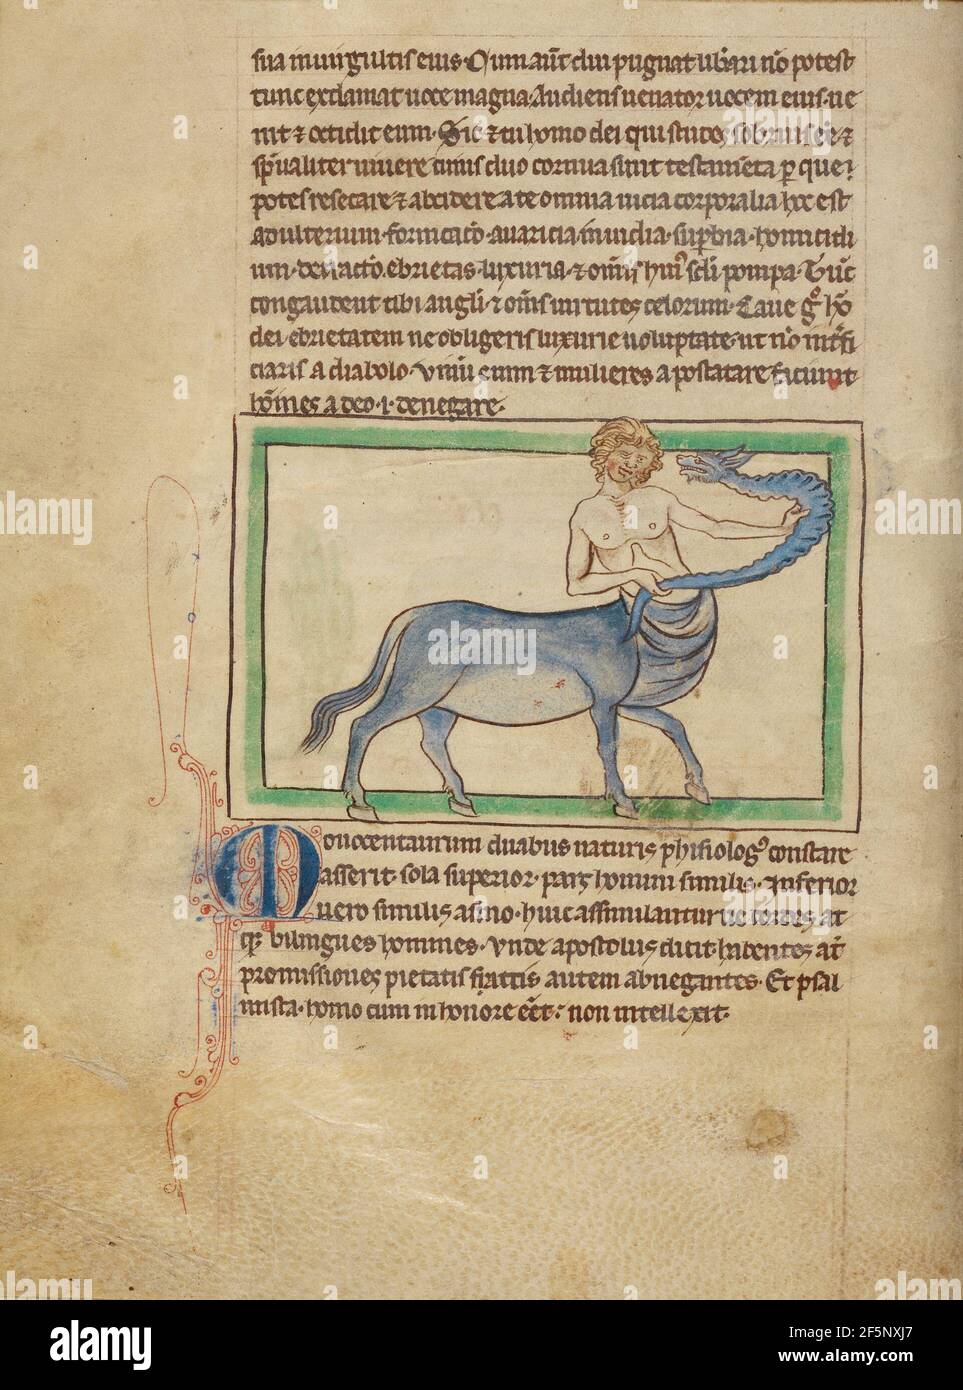 sua in uirgultis eius. Cum aut̄ diu pugnat liƀari nō potest
tunc exclamat uoce magna. Audiens uenator uocem eius ue
nit & occidit eum. Sic & tu homo dei qui studes sobrius eē &
sp̄ualiter uiuere cuius duo cornua sunt testam̄ta per que
potes resecare & abcidere a te omnia uicia corporalia hoc est
adulterium. fornicatō. auaricia. inuidia. suꝑbia. homicidi
um. detractō. ebrietas. luxuria. & om̄is huiꝰ scl̄i pompa. Tūc
congaudent tibi angli. & om̄s uirtutes celorum. Caue gͦ hō
dei ebrietatem ne obligeris luxurie uoluptate. ut nō int̄fi
ciaris a diabolo. Vinū enim & mulieres apostatare faciunt
hōmes a deo .i. denegare.
Onocentaurum duabus naturis phisiologꝰ constare
asserit. sola superior pars homini similis. Inferior
uero similis asino. huic assimilantur uecordes at
qꝫ bilingues homines. Vnde apostolus dicit. habentes at̄
promissiones pietatis factis autem abnegantes. Et psal
mista. homo cum in honore eēt: non intellexit.
alamy
Image ID: 2F5NXJ7
www.alamy.com